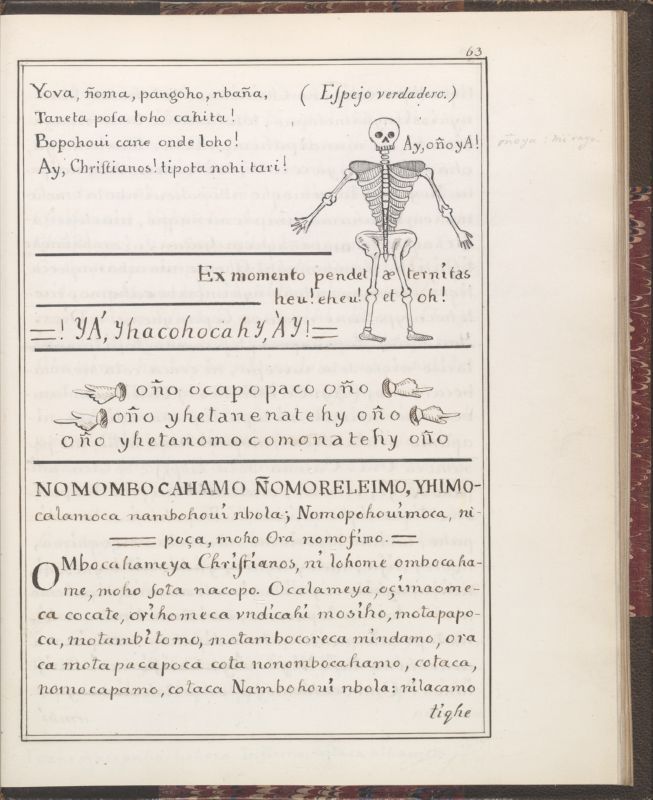 63
Yova, ñoma, pangoho, nbaña, ( Eſpejo verdadero.)
Taneta poſa loho cahita!
Bopohoui cane onde loho! Ay, oñoyA!
Ay, Chriſtianos! tipota nohi tari!
Ex momento pendet æternitas
heu! eheu! et oh!
=! YÁ, yhacohocahY, ÀY! =
oño ocapopaco oño
oño yhetanenatehy oño
oño yhetanomocomonatehy oño
NOMOMBOCAHAMO ÑOMORELEIMO, YHIMO-
calamoca nambohoui nbola; Nomopohouimoca, ni-
= poça, moho Ora nomoſimo. =
OMbocahameya Chriſtianos, ni lohome ombocaha-
me, moho ſota nacopo. Ocalameya, oçimaome-
ca cocate, ovihomeca vndicahi mosiho, motapapo-
ca, motambitomo, motambocoreca mindamo, ora
ca motapacapoca cota nonombocahamo, cotaca,
nomocapamo, cotaca Nambohoui nbola: nilacamo
tighe